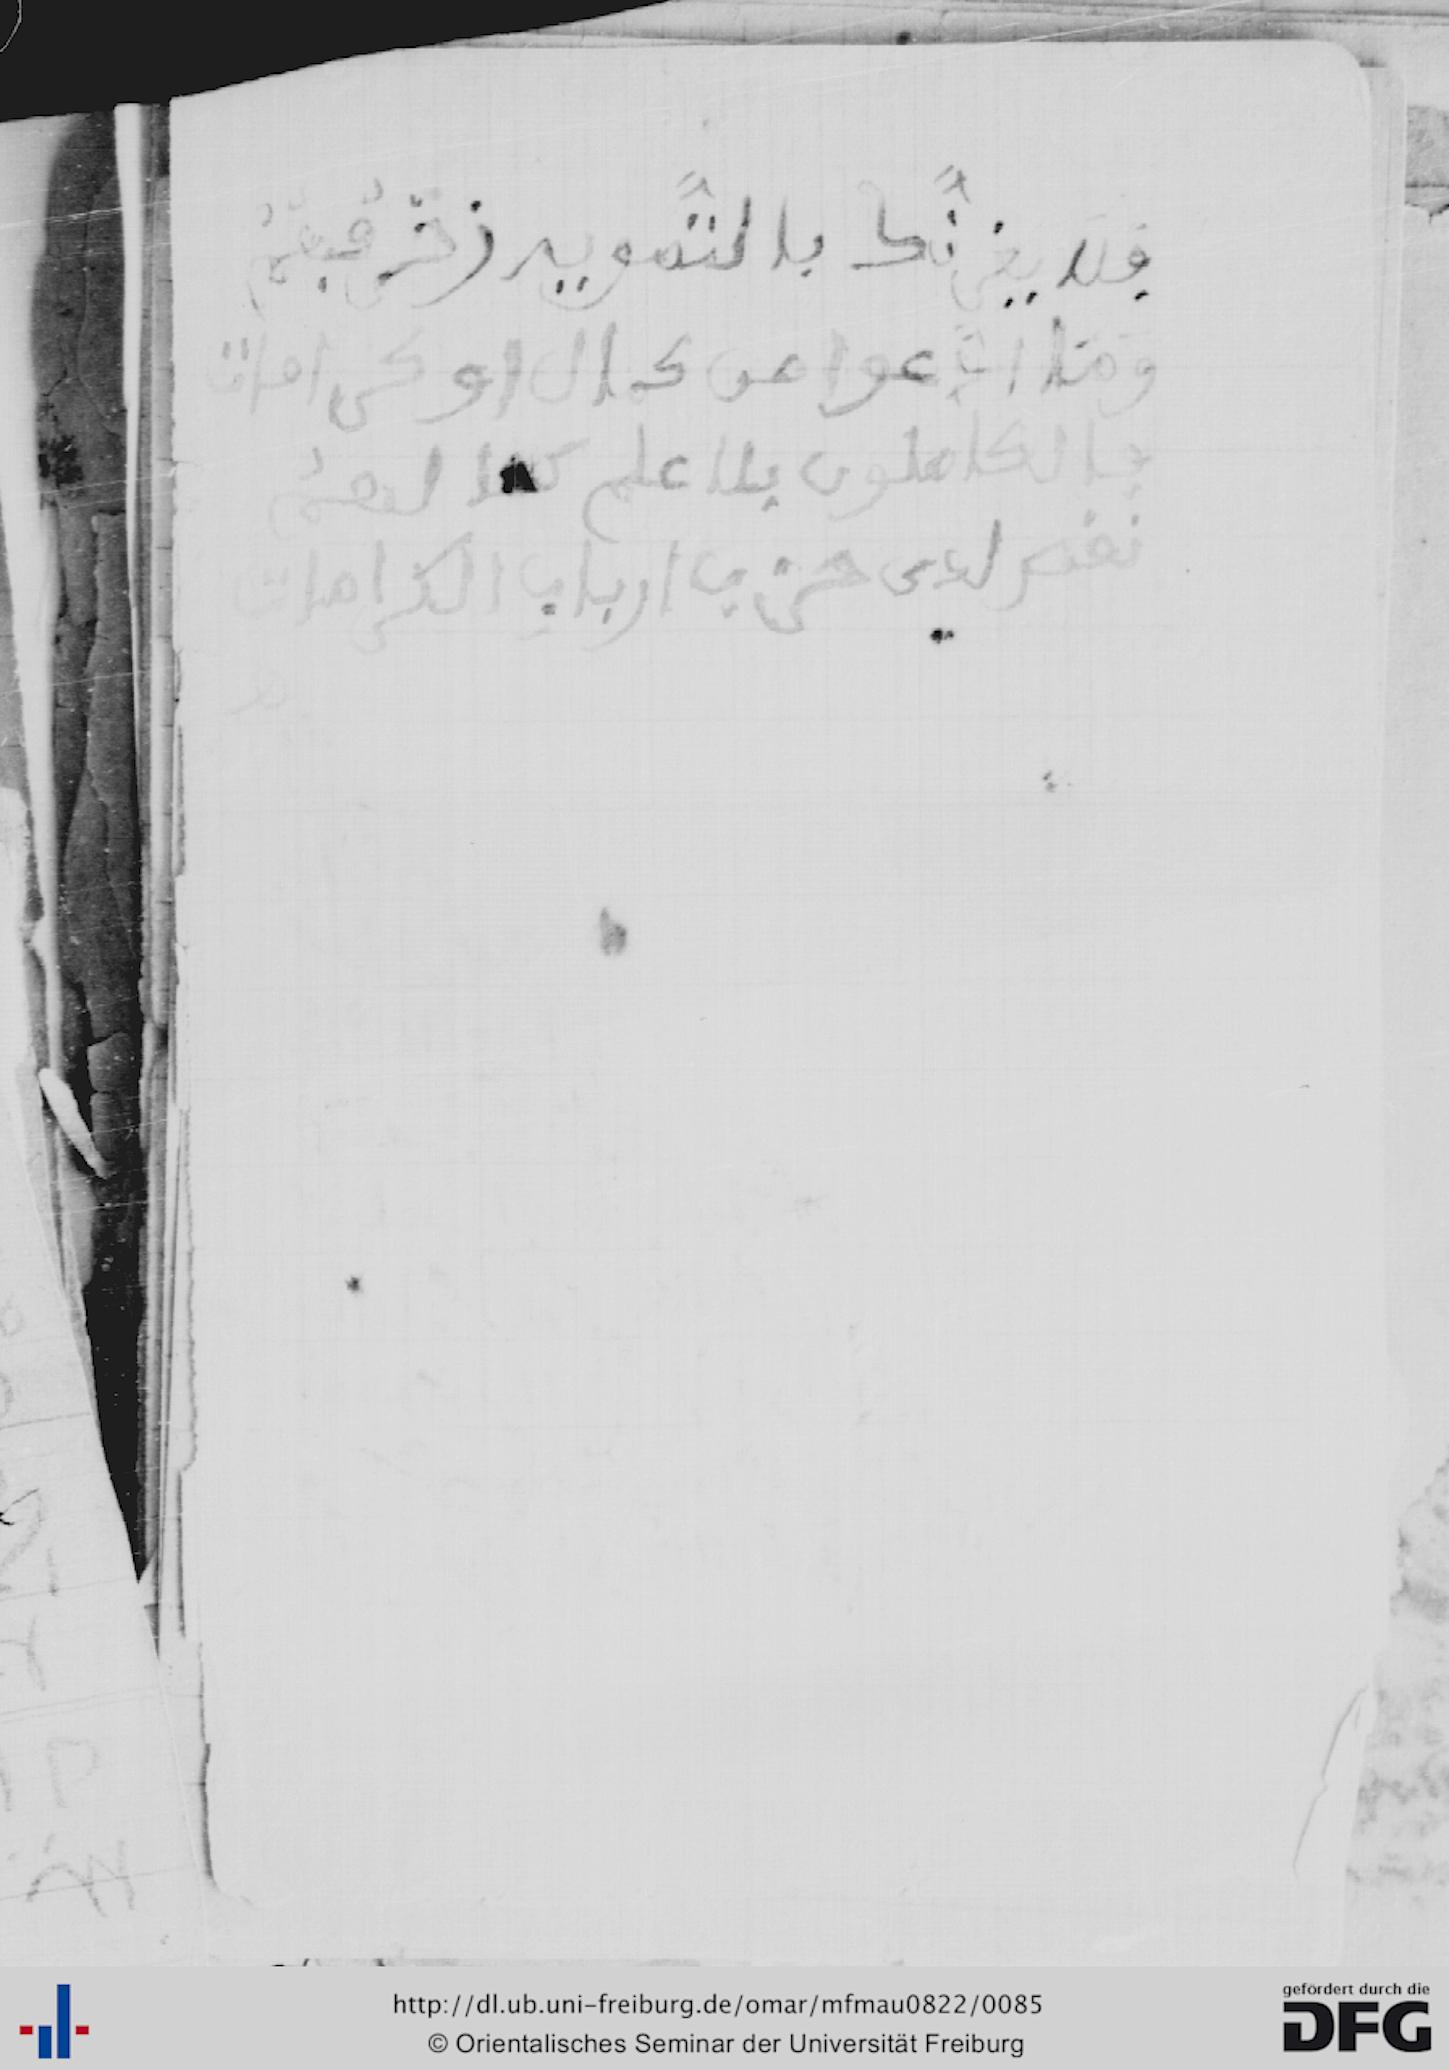 فلا يغرنّك بالتّمويه زخرفهمُ
وما ادّعوا من كمال او كرامات
فالكاملون بلا علم كمالهمُ
نقص لدى حزب ارباب الكرامات
http://dl.ub.uni-freiburg.de/omar/mfmau0822/0085
© Orientalisches Seminar der Universität Freiburg
gefördert durch die
DFG